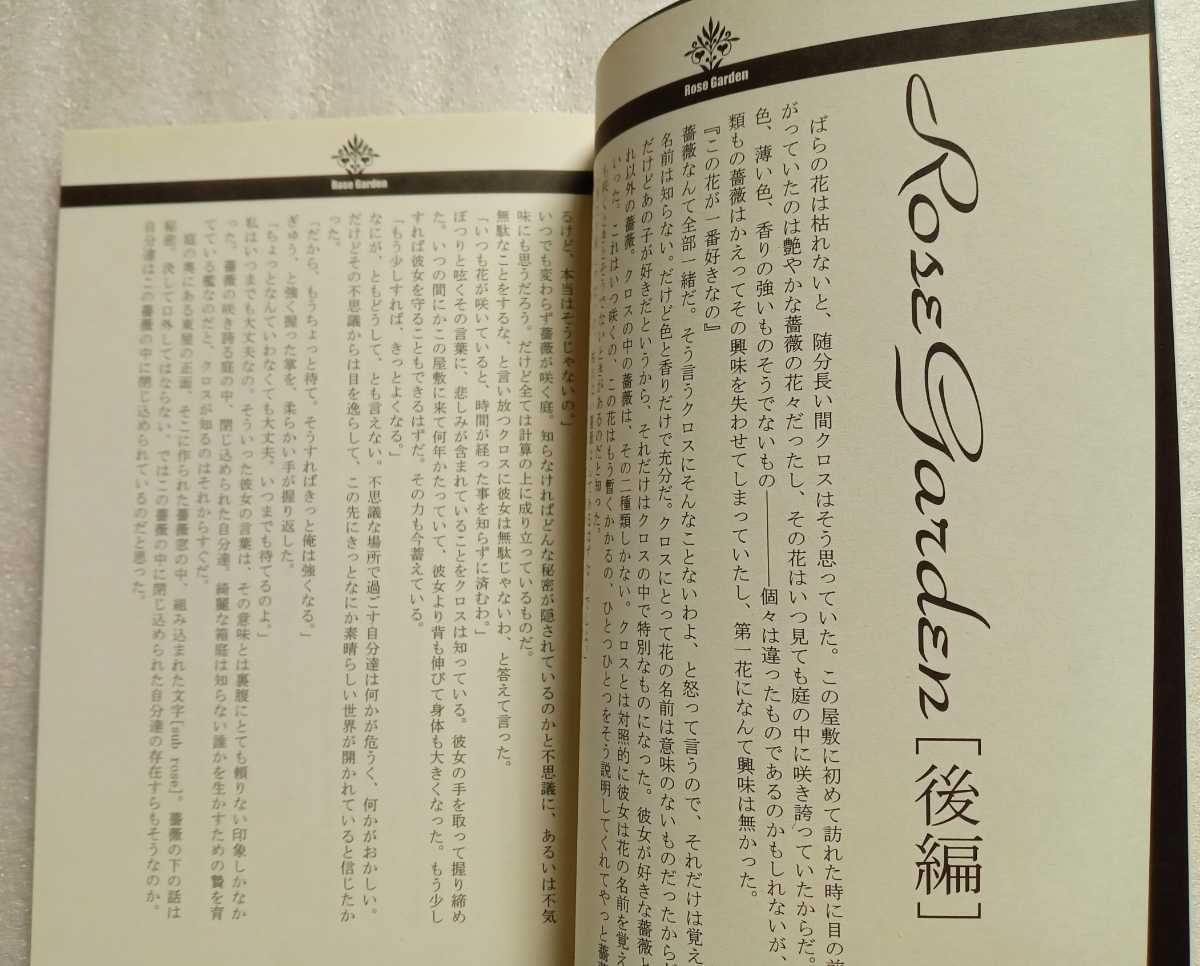 Rose Garden
Rose Garden［後編］
ばらの花は枯れないと、随分長い間クロスはそう思っていた。この屋敷に初めて訪れた時に目の前
がっていたのは艶やかな薔薇の花々だったし、その花はいつ見ても庭の中に咲き誇っていたからだ。
色、薄い色、香りの強いものそうでないもの――――個々は違ったものであるのかもしれないが、
類もの薔薇はかえってその興味を失わせてしまっていたし、第一花になんて興味は無かった。
『この花が一番好きなの』
薔薇なんて全部一緒だ。そう言うクロスにそんなことないわよ、と怒って言うので、それだけは覚え
名前は知らない。だけど色と香りだけで充分だ。クロスにとって花の名前は意味のないものだったからだ
だけどあの子が好きだというから、それだけはクロスの中で特別なものになった。彼女が好きな薔薇と
れ以外の薔薇。クロスの中の薔薇は、その二種類しかない。クロスとは対照的に彼女は花の名前を覚え
いった。これはいつ咲くの、この花はもう暫くかかるの、ひとつひとつをそう説明してくれてやっと薔薇
Rose Garden
るけど、本当はそうじゃないの。」
いつでも変わらず薔薇が咲く庭。知らなければどんな秘密が隠されているのかと不思議に、あるいは不気
味にも思うだろう。だけど全ては計算の上に成り立っているものだ。
無駄なことをするな、と言い放つクロスに彼女は無駄じゃないわ、と答えて言った。
「いつも花が咲いていると、時間が経った事を知らずに済むわ。」
ぽつりと呟くその言葉に、悲しみが含まれていることをクロスは知っている。彼女の手を取って握り締め
た。いつの間にかこの屋敷に来て何年かたっていて、彼女より背も伸びて身体も大きくなった。もう少し
すれば彼女を守ることもできるはずだ。その力も今蓄えている。
「もう少しすれば、きっとよくなる。」
なにが、ともどうして、とも言えない。不思議な場所で過ごす自分達は何かが危うく、何かがおかしい。
だけどその不思議からは目を逸らして、この先にきっとなにか素晴らしい世界が開かれていると信じたか
った。
「だから、もうちょっと待て。そうすればきっと俺は強くなる。」
ぎゅう、と強く握った掌を、柔らかい手が握り返した。
「ちょっとなんていわなくても大丈夫。いつまでも待てるのよ。」
私はいつまでも大丈夫なの。そういった彼女の言葉は、その意味とは裏腹にとても頼りない印象しかなか
った。薔薇の咲き誇る庭の中、閉じ込められた自分達。綺麗な箱庭は知らない誰かを生かすための贄を育
てている檻なのだと、クロスが知るのはそれからすぐだ。
庭の奥にある東屋の正面、そこに作られた薔薇窓の中、組み込まれた文字［sub rosa］。薔薇の下の話は
秘密。決して口外してはならない。ではこの薔薇の中に閉じ込められた自分達の存在すらもそうなのか。
自分達はこの薔薇の中に閉じ込められているのだと思った。